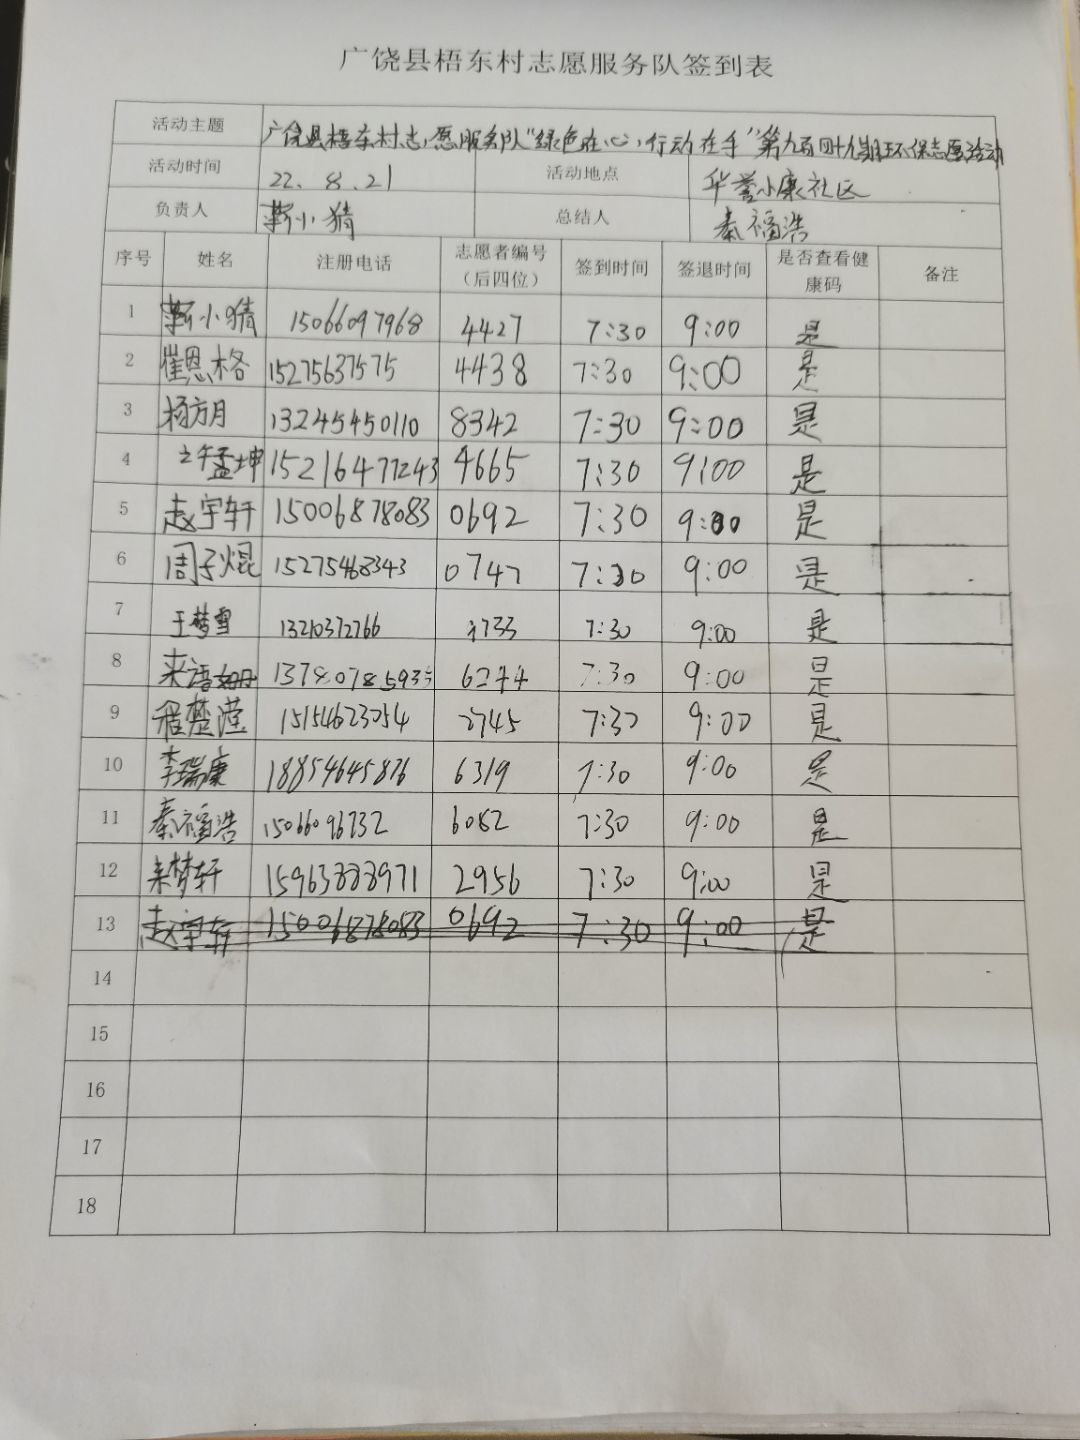 广饶县梧东村志愿服务队签到表
活动主题 广饶县梧东村志愿服务队“绿色在心,行动在手”第九百四十九期环保志愿活动
活动时间 22.8.21 活动地点 华誉小康社区
负责人 靳小猜 总结人 秦福浩
序号 姓名 注册电话 志愿者编号（后四位） 签到时间 签退时间 是否查看健康码 备注
1 靳小猜 15066097968 4427 7:30 9:00 是
2 崔恩格 15275637575 4438 7:30 9:00 是
3 杨方月 13245450110 8342 7:30 9:00 是
4 许孟坤 15216477243 4665 7:30 9:00 是
5 赵宇轩 15006878083 0692 7:30 9:00 是
6 周子焜 15275468343 0747 7:30 9:00 是
7 王梦雪 13210372766 7:30 9:00 是
8 来语姗 6244 7:30 9:00 是
9 程楚滢 15154623054 2745 7:30 9:00 是
10 李瑞康 18854645876 6319 7:30 9:00 是
11 秦福浩 15066096732 6082 7:30 9:00 是
12 来梦轩 15963888971 2956 7:30 9:00 是
13 赵宇轩 15006878083 0692 7:30 9:00 是
14
15
16
17
18